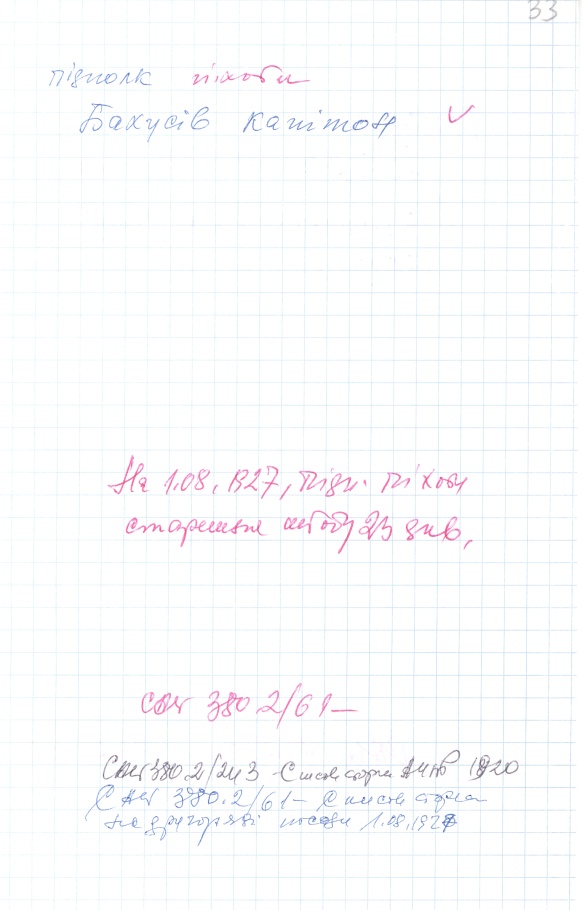 33
підполк піхоти
Бакусів Капітон
На 1.08. 1927, підп. піхоти
старшина штабу див.
380 2/61 —
380.2/243 - Список старш 1920
380.2/61 - Список старш
на другорядні посади 1.08.1927